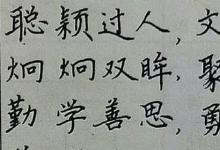 聪颖过人,文
炯炯双眸,聚
勤学善思,勇